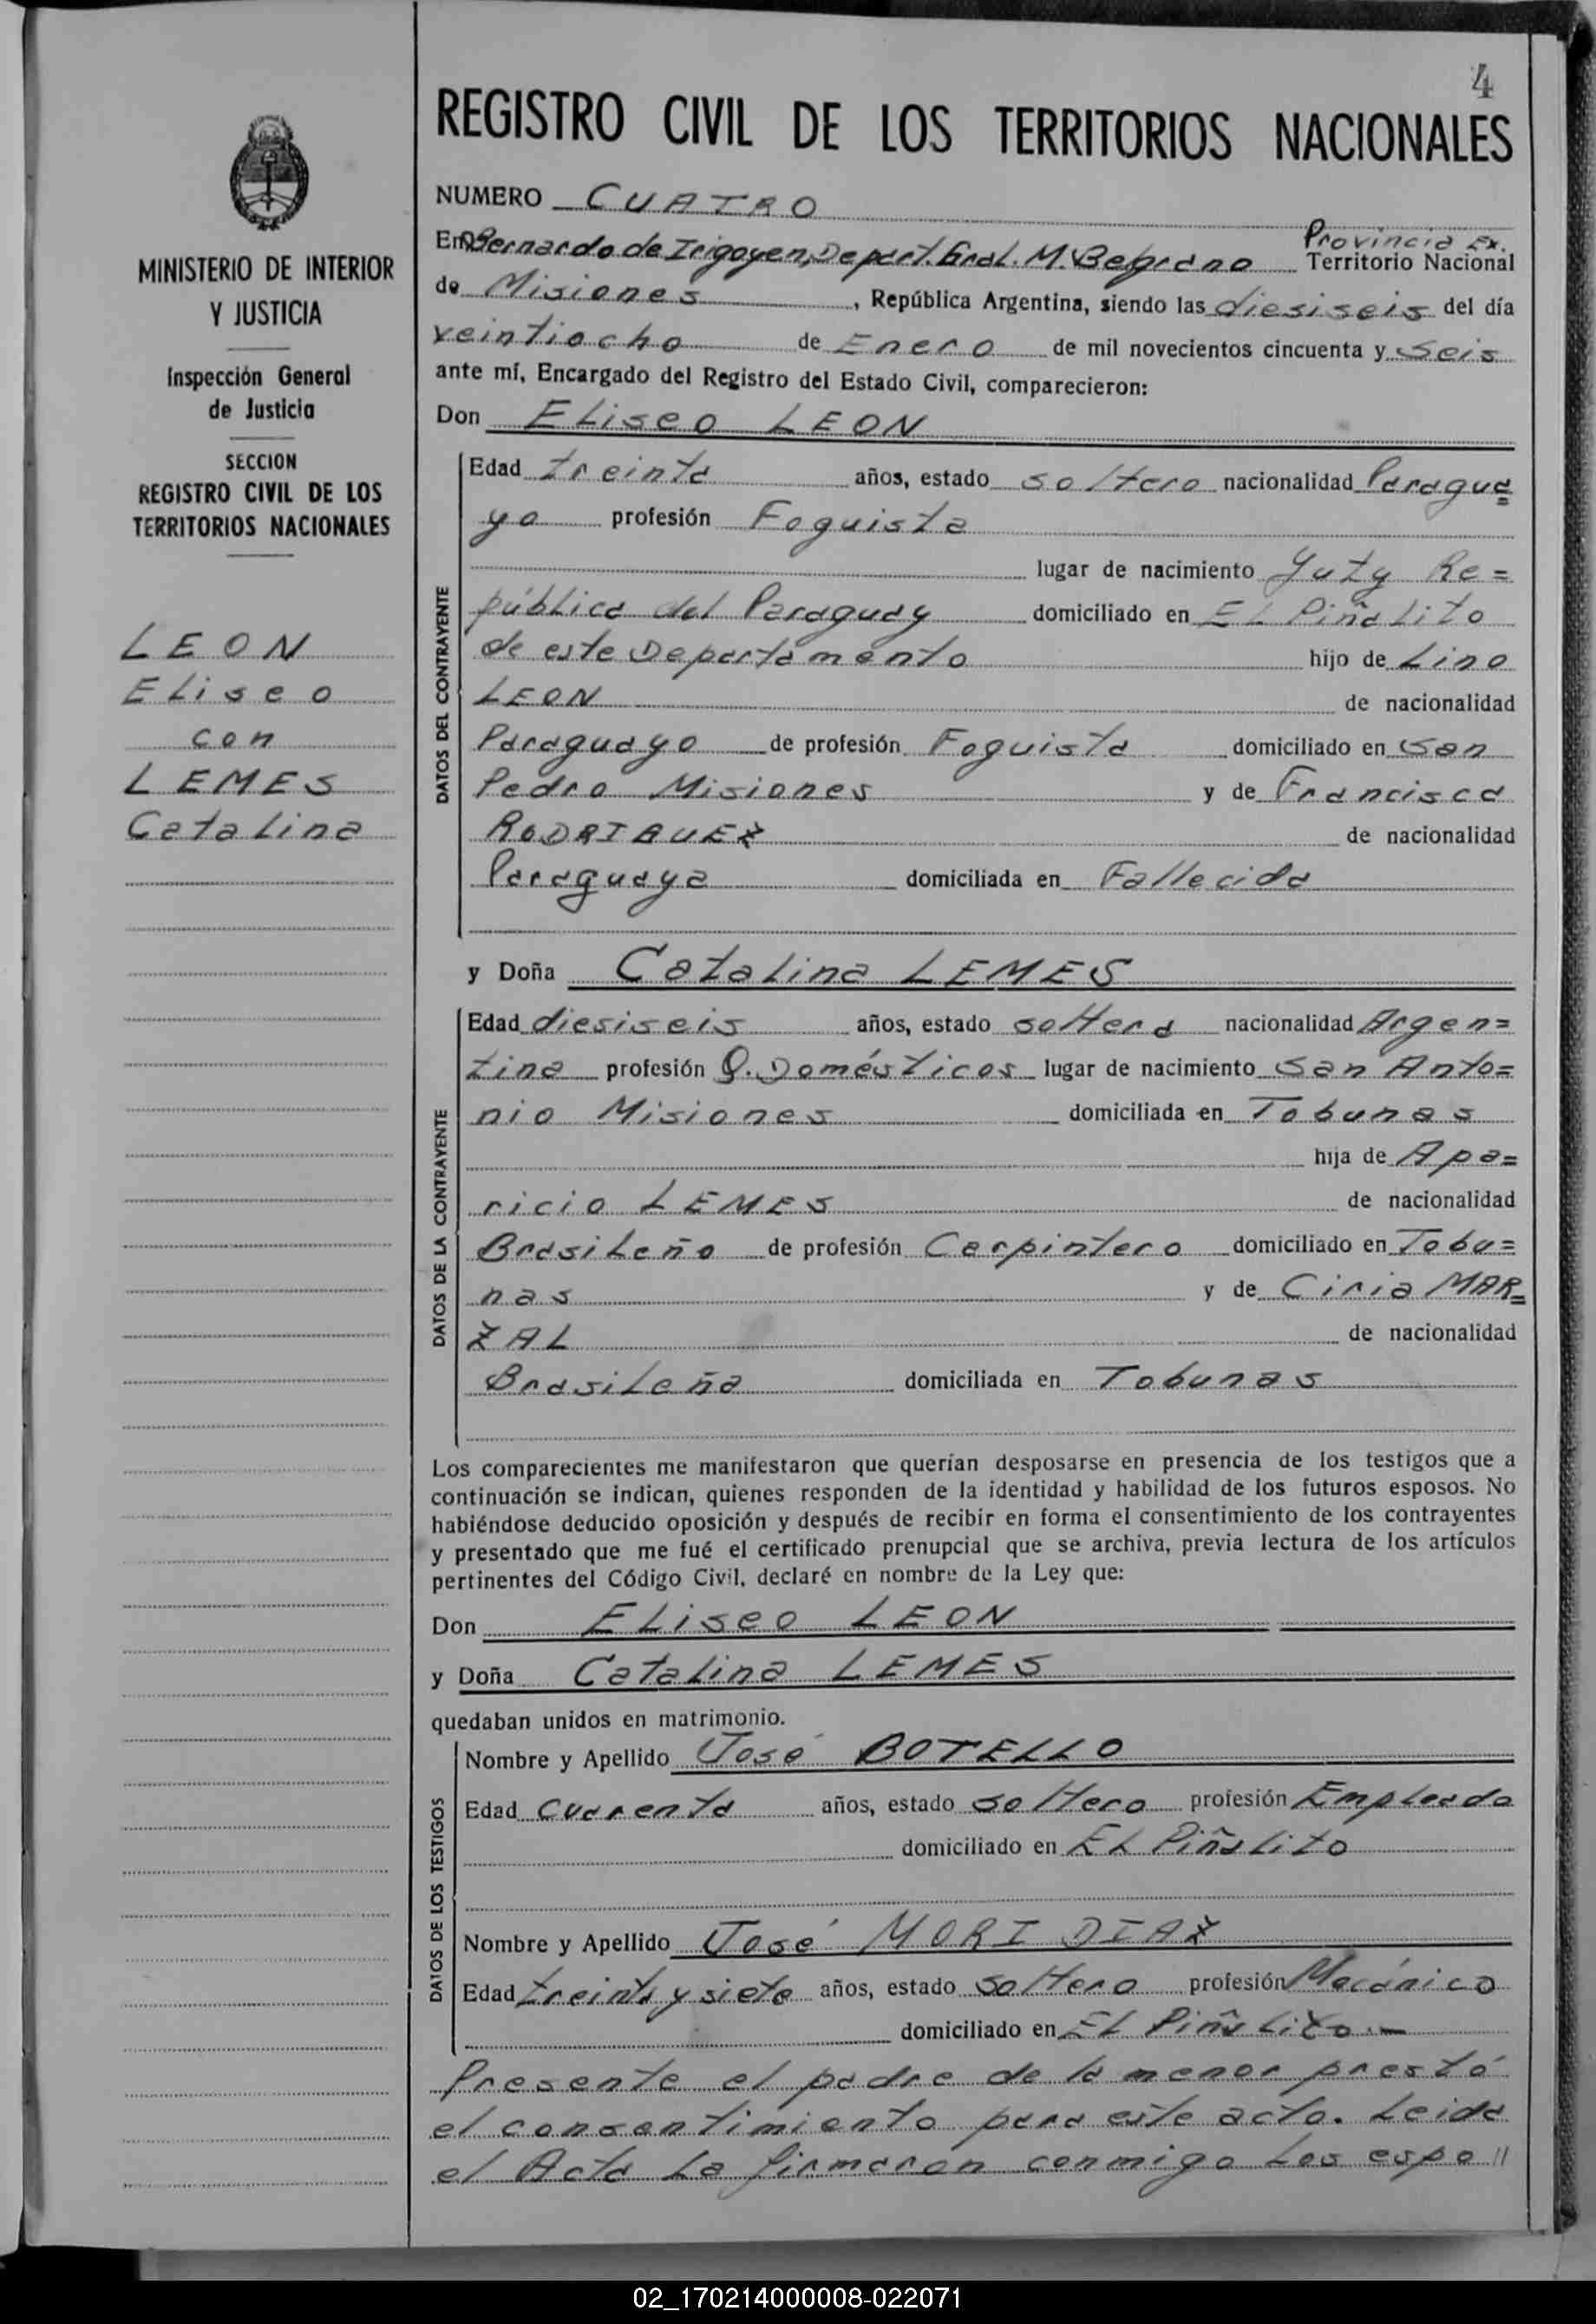 4
REGISTRO CIVIL DE LOS TERRITORIOS NACIONALES
MINISTERIO DE INTERIOR
Y JUSTICIA
Inspección General
de Justicia
SECCION
REGISTRO CIVIL DE LOS
TERRITORIOS NACIONALES
LEON
Eliseo
con
LEMES
Catalina
NUMERO CUATRO
En Bernardo de Irigoyen, Depart. Gral. M. Belgrano Provincia Ex. Territorio Nacional
de Misiones, República Argentina, siendo las diesiseis del día
veintiocho de Enero de mil novecientos cincuenta y seis
ante mí, Encargado del Registro del Estado Civil, comparecieron:
Don Eliseo LEON
DATOS DEL CONTRAYENTE
Edad treinta años, estado soltero nacionalidad Paragua=
yo profesión Foguista
lugar de nacimiento Yuty Re=
pública del Paraguay domiciliado en El Piñalito
de este Departamento hijo de Lino
LEON de nacionalidad
Paraguayo de profesión Foguista domiciliado en San
Pedro Misiones y de Francisca
RODRIGUEZ de nacionalidad
Paraguaya domiciliada en Fallecida
y Doña Catalina LEMES
DATOS DE LA CONTRAYENTE
Edad diesiseis años, estado soltera nacionalidad Argen=
tina profesión Q. Domésticos lugar de nacimiento San Anto=
nio Misiones domiciliada en Tobunas
hija de Apa=
ricio LEMES de nacionalidad
Brasileño de profesión Carpintero domiciliado en Tobu=
nas y de Ciria MAR=
ZAL de nacionalidad
Brasileña domiciliada en Tobunas
Los comparecientes me manifestaron que querían desposarse en presencia de los testigos que a
continuación se indican, quienes responden de la identidad y habilidad de los futuros esposos. No
habiéndose deducido oposición y después de recibir en forma el consentimiento de los contrayentes
y presentado que me fué el certificado prenupcial que se archiva, previa lectura de los artículos
pertinentes del Código Civil, declaré en nombre de la Ley que:
Don Eliseo LEON
y Doña Catalina LEMES
quedaban unidos en matrimonio.
DATOS DE LOS TESTIGOS
Nombre y Apellido José BOTELLO
Edad cuarenta años, estado soltero profesión Empleado
domiciliado en El Piñalito
Nombre y Apellido José MORI DIAZ
Edad treinta y siete años, estado soltero profesión Mecánico
domiciliado en El Piñalito.—
Presente el padre de la menor prestó
el consentimiento para este acto. Leida
el Acta la firmaron conmigo los espo"
02_170214000008-022071